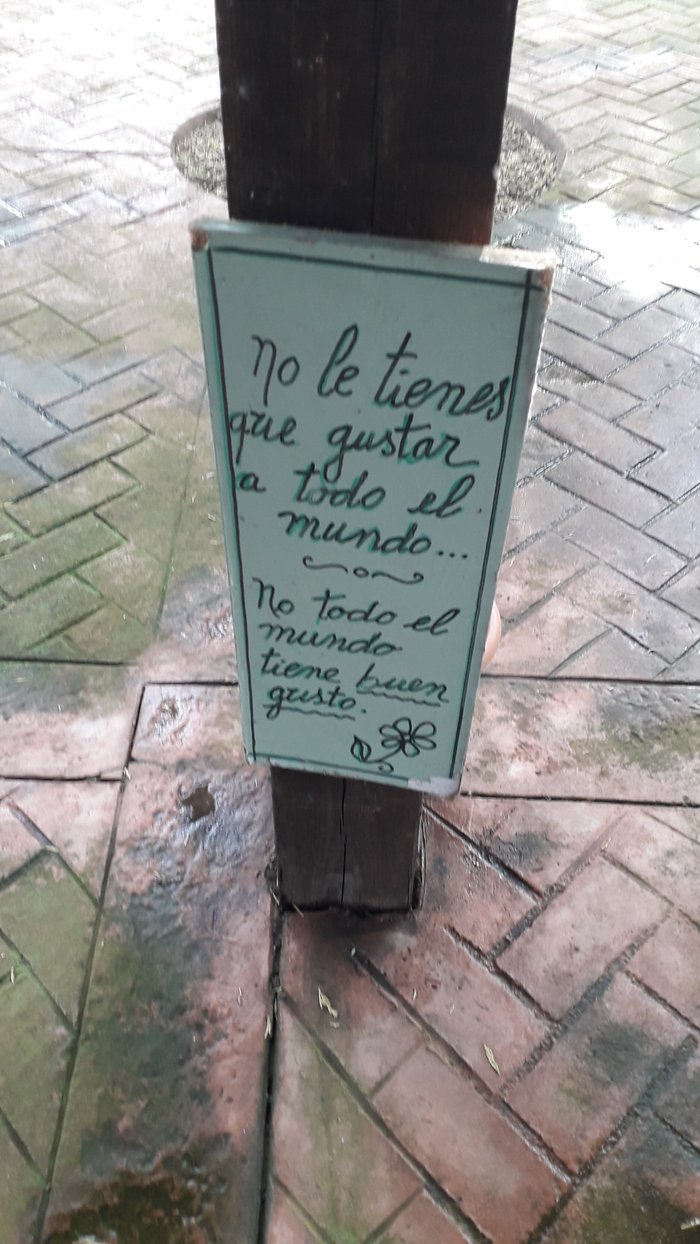 No le tienes
que gustar
a todo el
mundo...
No todo el
mundo
tiene buen
gusto.